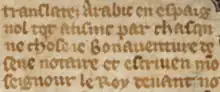 translate; darabic en espaig
nol tot ausint par chascu
ne chose ie bonauenture de
sene notaire et escriuen mo
seignour le Roy deuant no